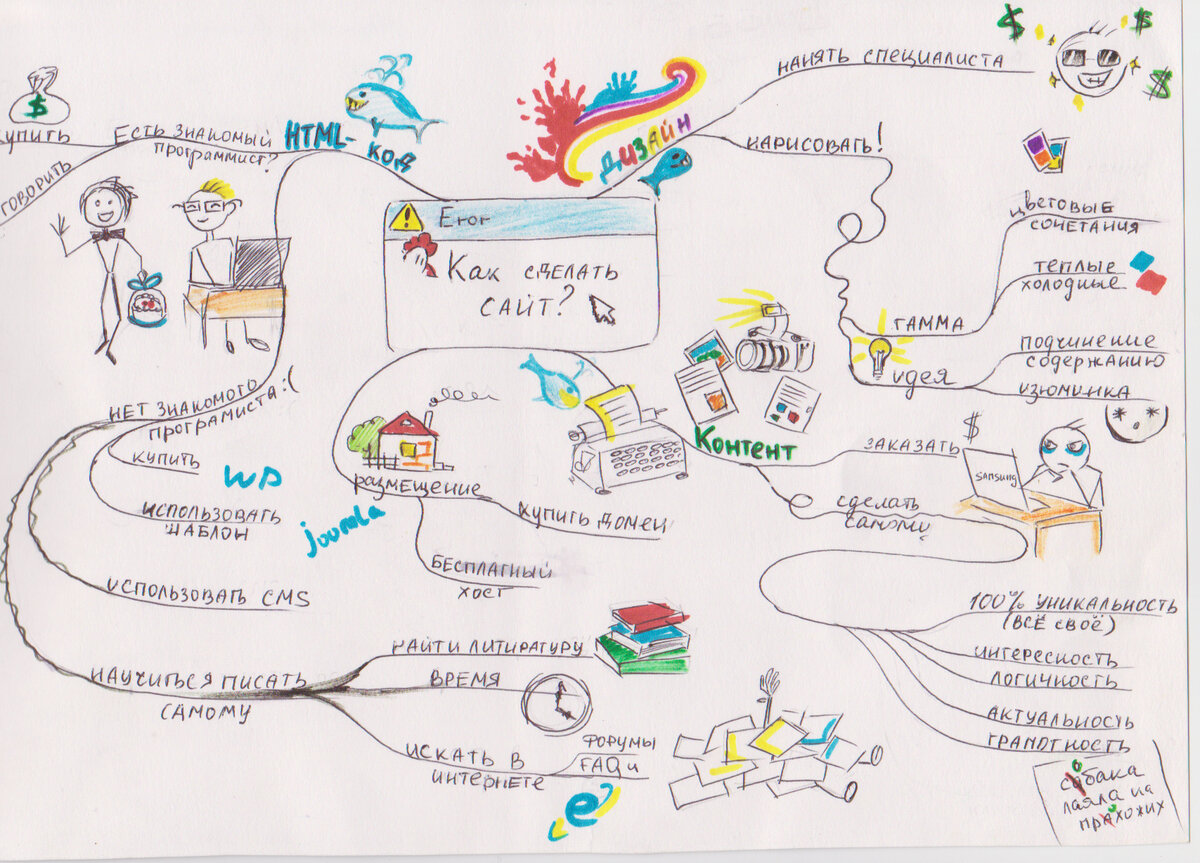 Eror
Как сделать
сайт?
Дизайн
нанять специалиста
$
$
$
нарисовать!
гамма
цветовые
сочетания
теплые
холодные
идея
подчинение
содержанию
изюминка
Контент
заказать
$
samsung
сделать
самому
100% уникальность
(всё своё)
интересность
логичность
актуальность
грамотность
собака
лаяла на
прохожих
размещение
купить домен
бесплатный
хост
HTML-
код
Есть знакомый
программист?
$
купить
говорить
нет знакомого
програмиста :(
купить
использовать
шаблон
WP
joomla
использовать CMS
научиться писать
самому
найти литиратуру
время
искать в
интернете
форумы
FAQи
e